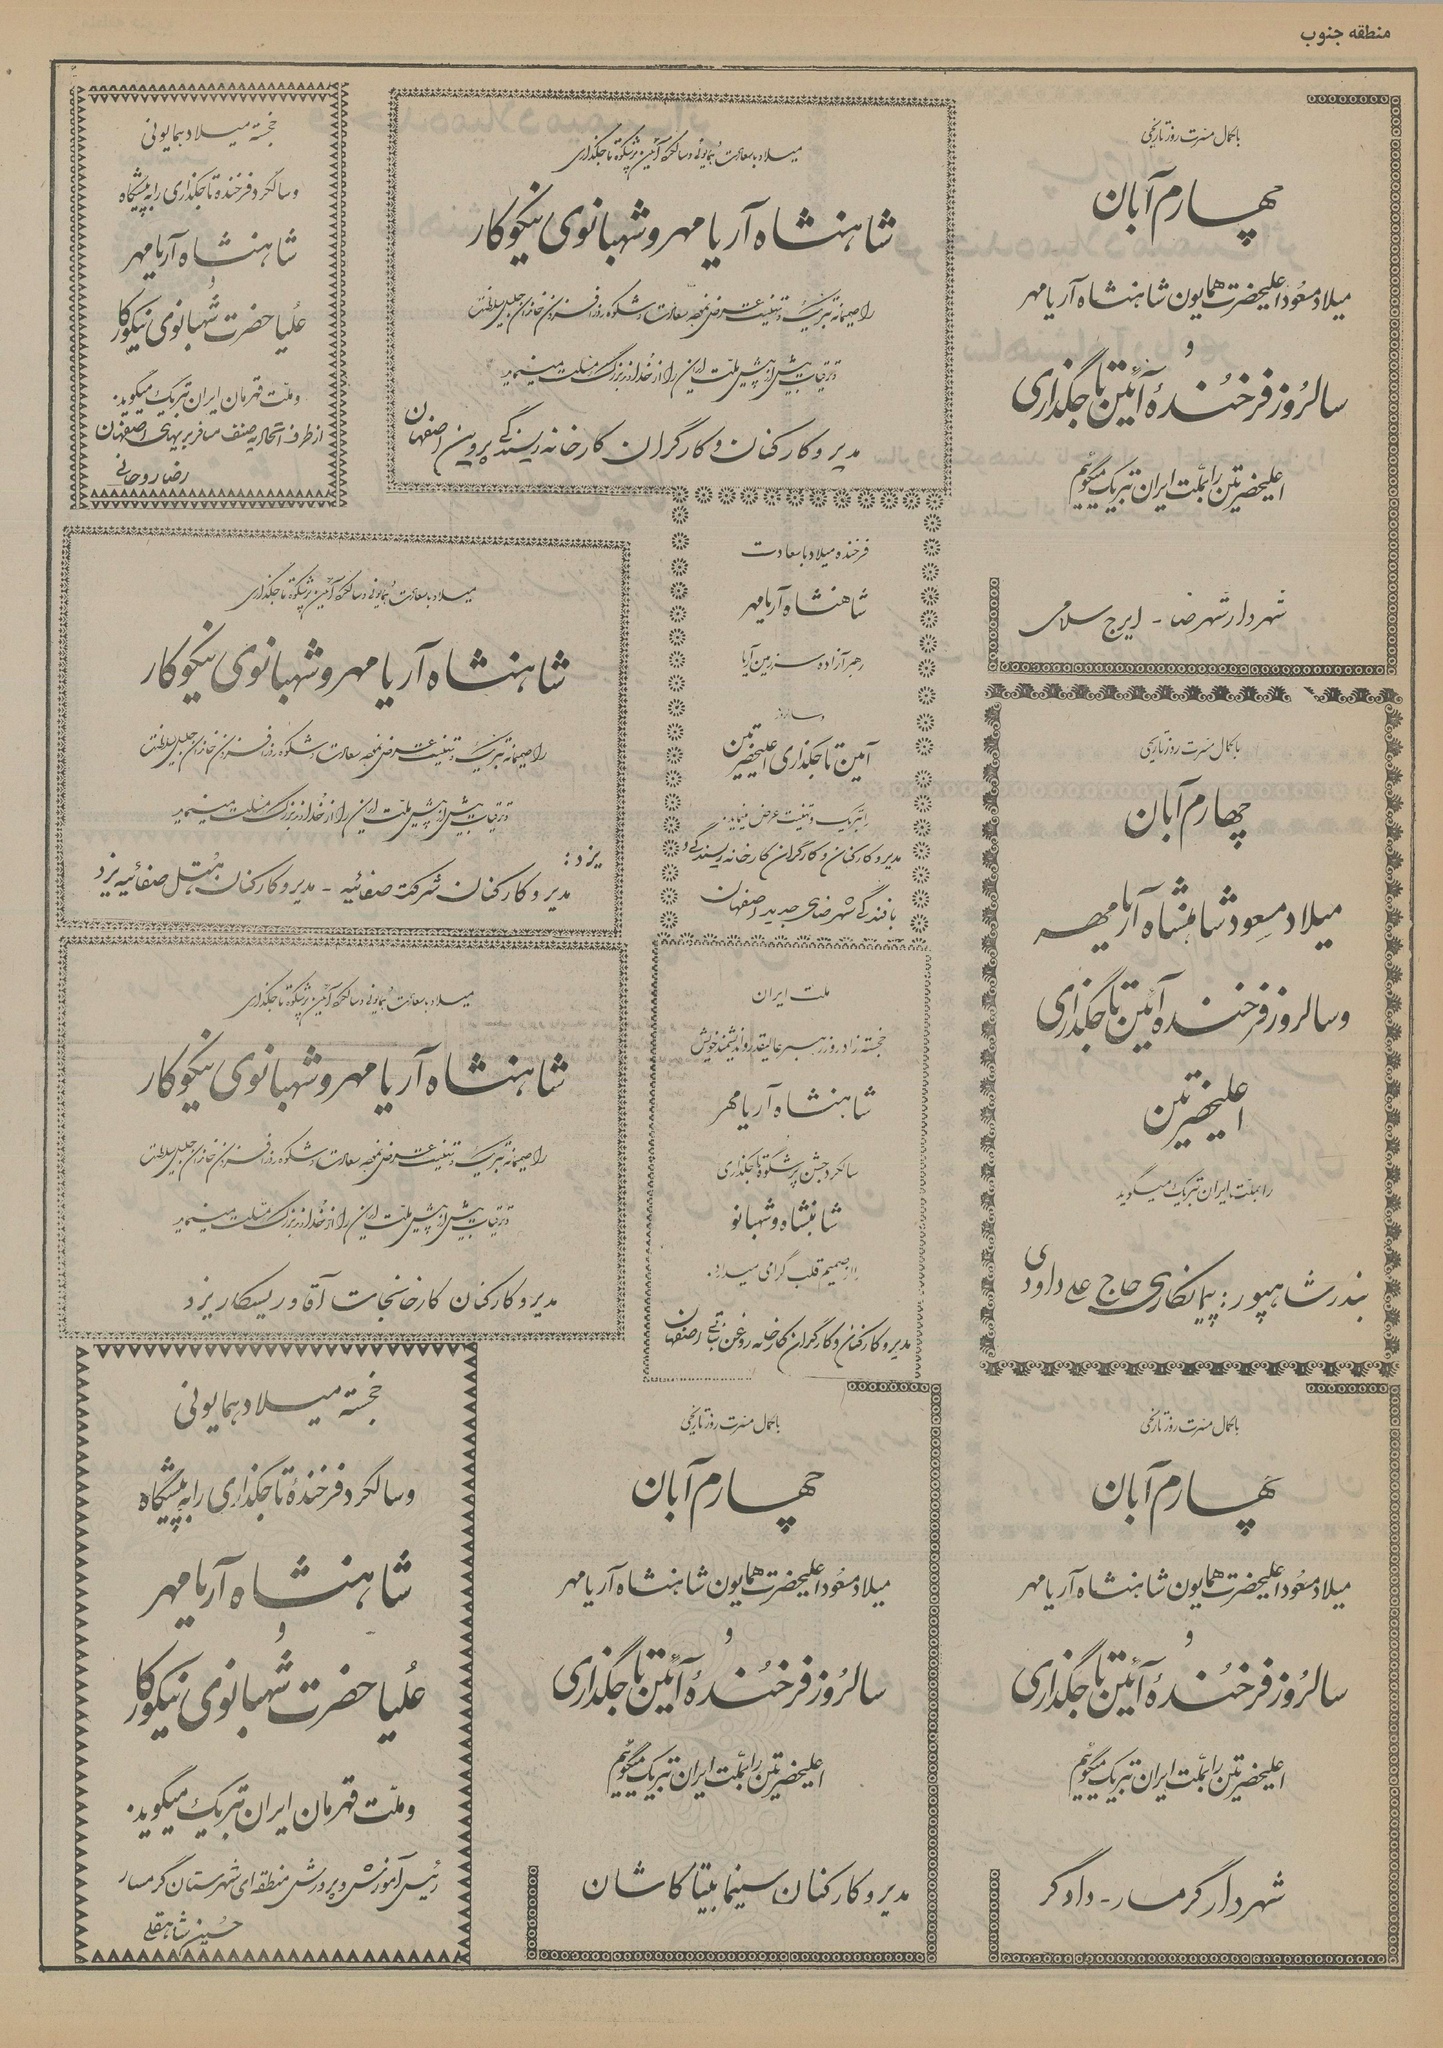 منطقه جنوب
با کمال مسرت روز تاریخی
چهارم آبان
میلاد مسعود اعلیحضرت همایون شاهنشاه آریامهر
و
سالروز فرخنده آئین تاجگذاری
اعلیحضرتین را بملت ایران تبریک میگوئیم
شهردار شهرضا - ایرج سلامی
میلاد با سعادت همایونی و سالگرد آئین پرشکوه تاجگذاری
شاهنشاه آریامهر و شهبانوی نیکوکار
را صمیمانه تبریک و تهنیت عرض نموده سعادت و شکوه روزافزون خاندان جلیل سلطنت
و ترقیات بیش از پیش ملت ایران را از خداوند بزرگ مسئلت مینماید
مدیر و کارکنان و کارگران کارخانه ریسندگی پروین اصفهان
خجسته میلاد همایونی
و سالگرد فرخنده تاجگذاری را به پیشگاه
شاهنشاه آریامهر
و
علیاحضرت شهبانوی نیکوکار
و ملت قهرمان ایران تبریک میگوید.
از طرف اتحادیه صنف مسافربریهای اصفهان
رضا روحانی
فرخنده میلاد با سعادت
شاهنشاه آریامهر
رهبر آزاده سرزمین آریا
و سالروز
آئین تاجگذاری اعلیحضرتین
را تبریک و تهنیت عرض مینماید.
مدیر و کارکنان و کارگران کارخانه ریسندگی و
بافندگی شهرضای جدید اصفهان
میلاد با سعادت همایونی و سالگرد آئین پرشکوه تاجگذاری
شاهنشاه آریامهر و شهبانوی نیکوکار
را صمیمانه تبریک و تهنیت عرض نموده سعادت و شکوه روزافزون خاندان جلیل سلطنت
و ترقیات بیش از پیش ملت ایران را از خداوند بزرگ مسئلت مینماید
یزد:
مدیر و کارکنان شرکت صفائیه - مدیر و کارکنان هتل صفائیه یزد
با کمال مسرت روز تاریخی
چهارم آبان
میلاد مسعود شاهنشاه آریامهر
و سالروز فرخنده آئین تاجگذاری
اعلیحضرتین
را بملت ایران تبریک میگوید
بندر شاهپور: پیمانکاری حاج علی داودی
ملت ایران
خجسته زادروز رهبر عالیقدر و اندیشمند خویش
شاهنشاه آریامهر
و
سالگرد جشن پرشکوه تاجگذاری
شاهنشاه و شهبانو
را از صمیم قلب گرامی میدارد.
مدیر و کارکنان و کارگران کارخانه روغن نباتی اصفهان
میلاد با سعادت همایونی و سالگرد آئین پرشکوه تاجگذاری
شاهنشاه آریامهر و شهبانوی نیکوکار
را صمیمانه تبریک و تهنیت عرض نموده سعادت و شکوه روزافزون خاندان جلیل سلطنت
و ترقیات بیش از پیش ملت ایران را از خداوند بزرگ مسئلت مینماید
مدیر و کارکنان کارخانجات یزد
با کمال مسرت روز تاریخی
چهارم آبان
میلاد مسعود اعلیحضرت همایون شاهنشاه آریامهر
و
سالروز فرخنده آئین تاجگذاری
اعلیحضرتین را بملت ایران تبریک میگوئیم
شهردار گرمسار - دادگر
با کمال مسرت روز تاریخی
چهارم آبان
میلاد مسعود اعلیحضرت همایون شاهنشاه آریامهر
و
سالروز فرخنده آئین تاجگذاری
اعلیحضرتین را بملت ایران تبریک میگوئیم
مدیر و کارکنان سینما بیتا کاشان
خجسته میلاد همایونی
و سالگرد فرخنده تاجگذاری را به پیشگاه
شاهنشاه آریامهر
و
علیاحضرت شهبانوی نیکوکار
و ملت قهرمان ایران تبریک میگوید.
رئیس آموزش و پرورش منطقه‌ای شهرستان گرمسار
حسین شاهقلی